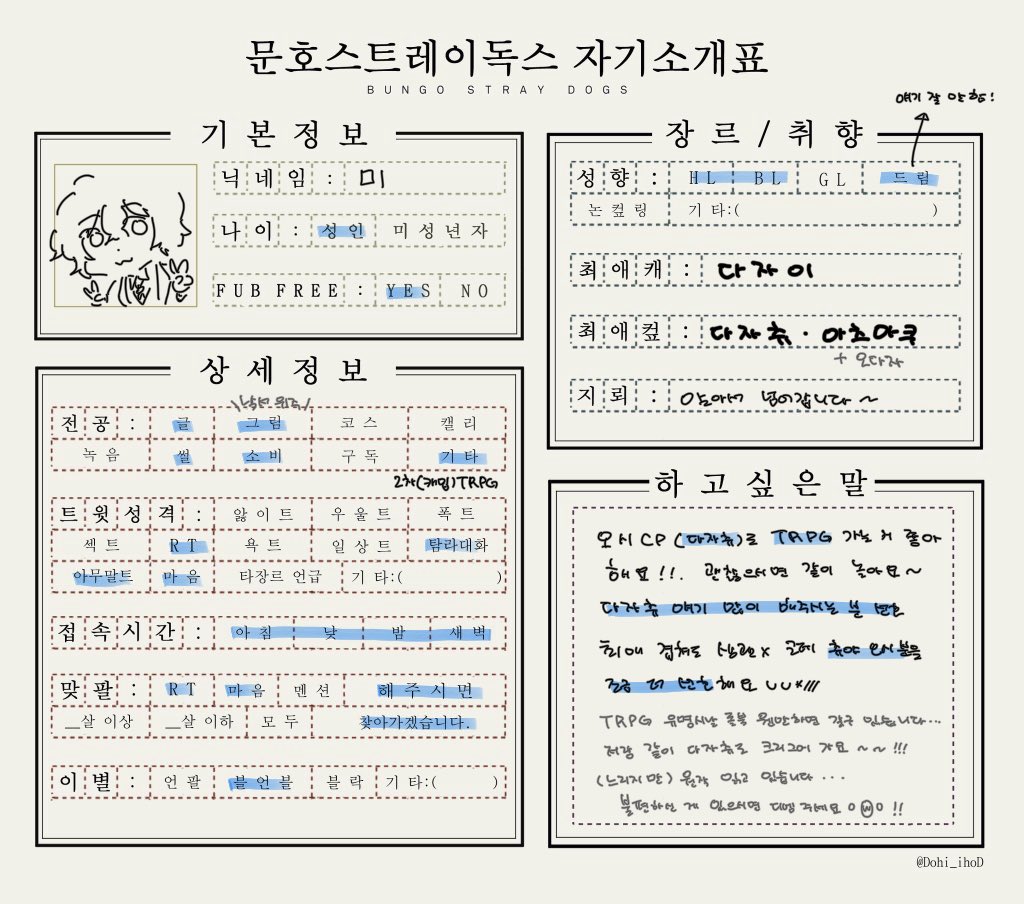 문호스트레이독스 자기소개표
BUNGO STRAY DOGS
기본정보
닉네임 : 미
나이 : 성인 미성년자
FUB FREE : YES NO
상세정보
전공 : 글 그림 코스 캘리
녹음 썰 소비 구독 기타
2차(개입)TRPG
트윗성격 : 앓이트 우울트 폭트
섹트 RT 욕트 일상트 탐라대화
아무말트 마음 타장르 언급 기타:( )
접속시간 : 아침 낮 밤 새벽
맞팔 : RT 마음 멘션 해주시면
__살 이상 __살 이하 모두 찾아가겠습니다.
이별 : 언팔 블언블 블락 기타:( )
얘기 잘 안함!
장르/취향
성향 : HL BL GL 드림
논컾링 기타:( )
최애캐 : 다자이
최애컾 : 다자츄 · 아츠아쿠
+ 오다자
지뢰 : 알아서 넘어갑니다~
하고싶은말
오시CP(다자츄)로 TRPG 가는 거 좋아
해요!!. 괜찮으시면 같이 놀아요~
다자츄 얘기 많이 해주시는 분 선호
최애 겹쳐도 상관x 근데 츄야 오시분을
조금 더 선호해요
TRPG 유명시날 룰북 웬만하면 갈구 있습니다...
저랑 같이 다자츄로 크리그어 가요~~!!!
(느리지만) 원작 읽고 있습니다...
불편하신 게 있으시면 디엠 주세요 !!
@Dohi_ihoD